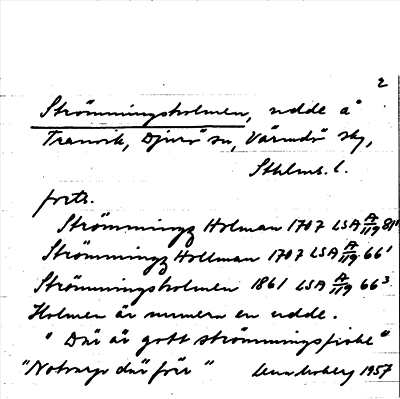 2
Strömmingsholmen, udde å
Tranvik, Djurö sn, Värmdö sky,
Sthlms. l.
forts.
Strömmingz Holman 1707 LSA A/119 81¹
Strömmingz Hollman 1707 LSA A/119 66¹
Strömmingsholmen 1861 LSA A/119 66³
Holmen är numera en udde.
" Där är gott strömmingsfiske "
"Notvarp därför " 1957